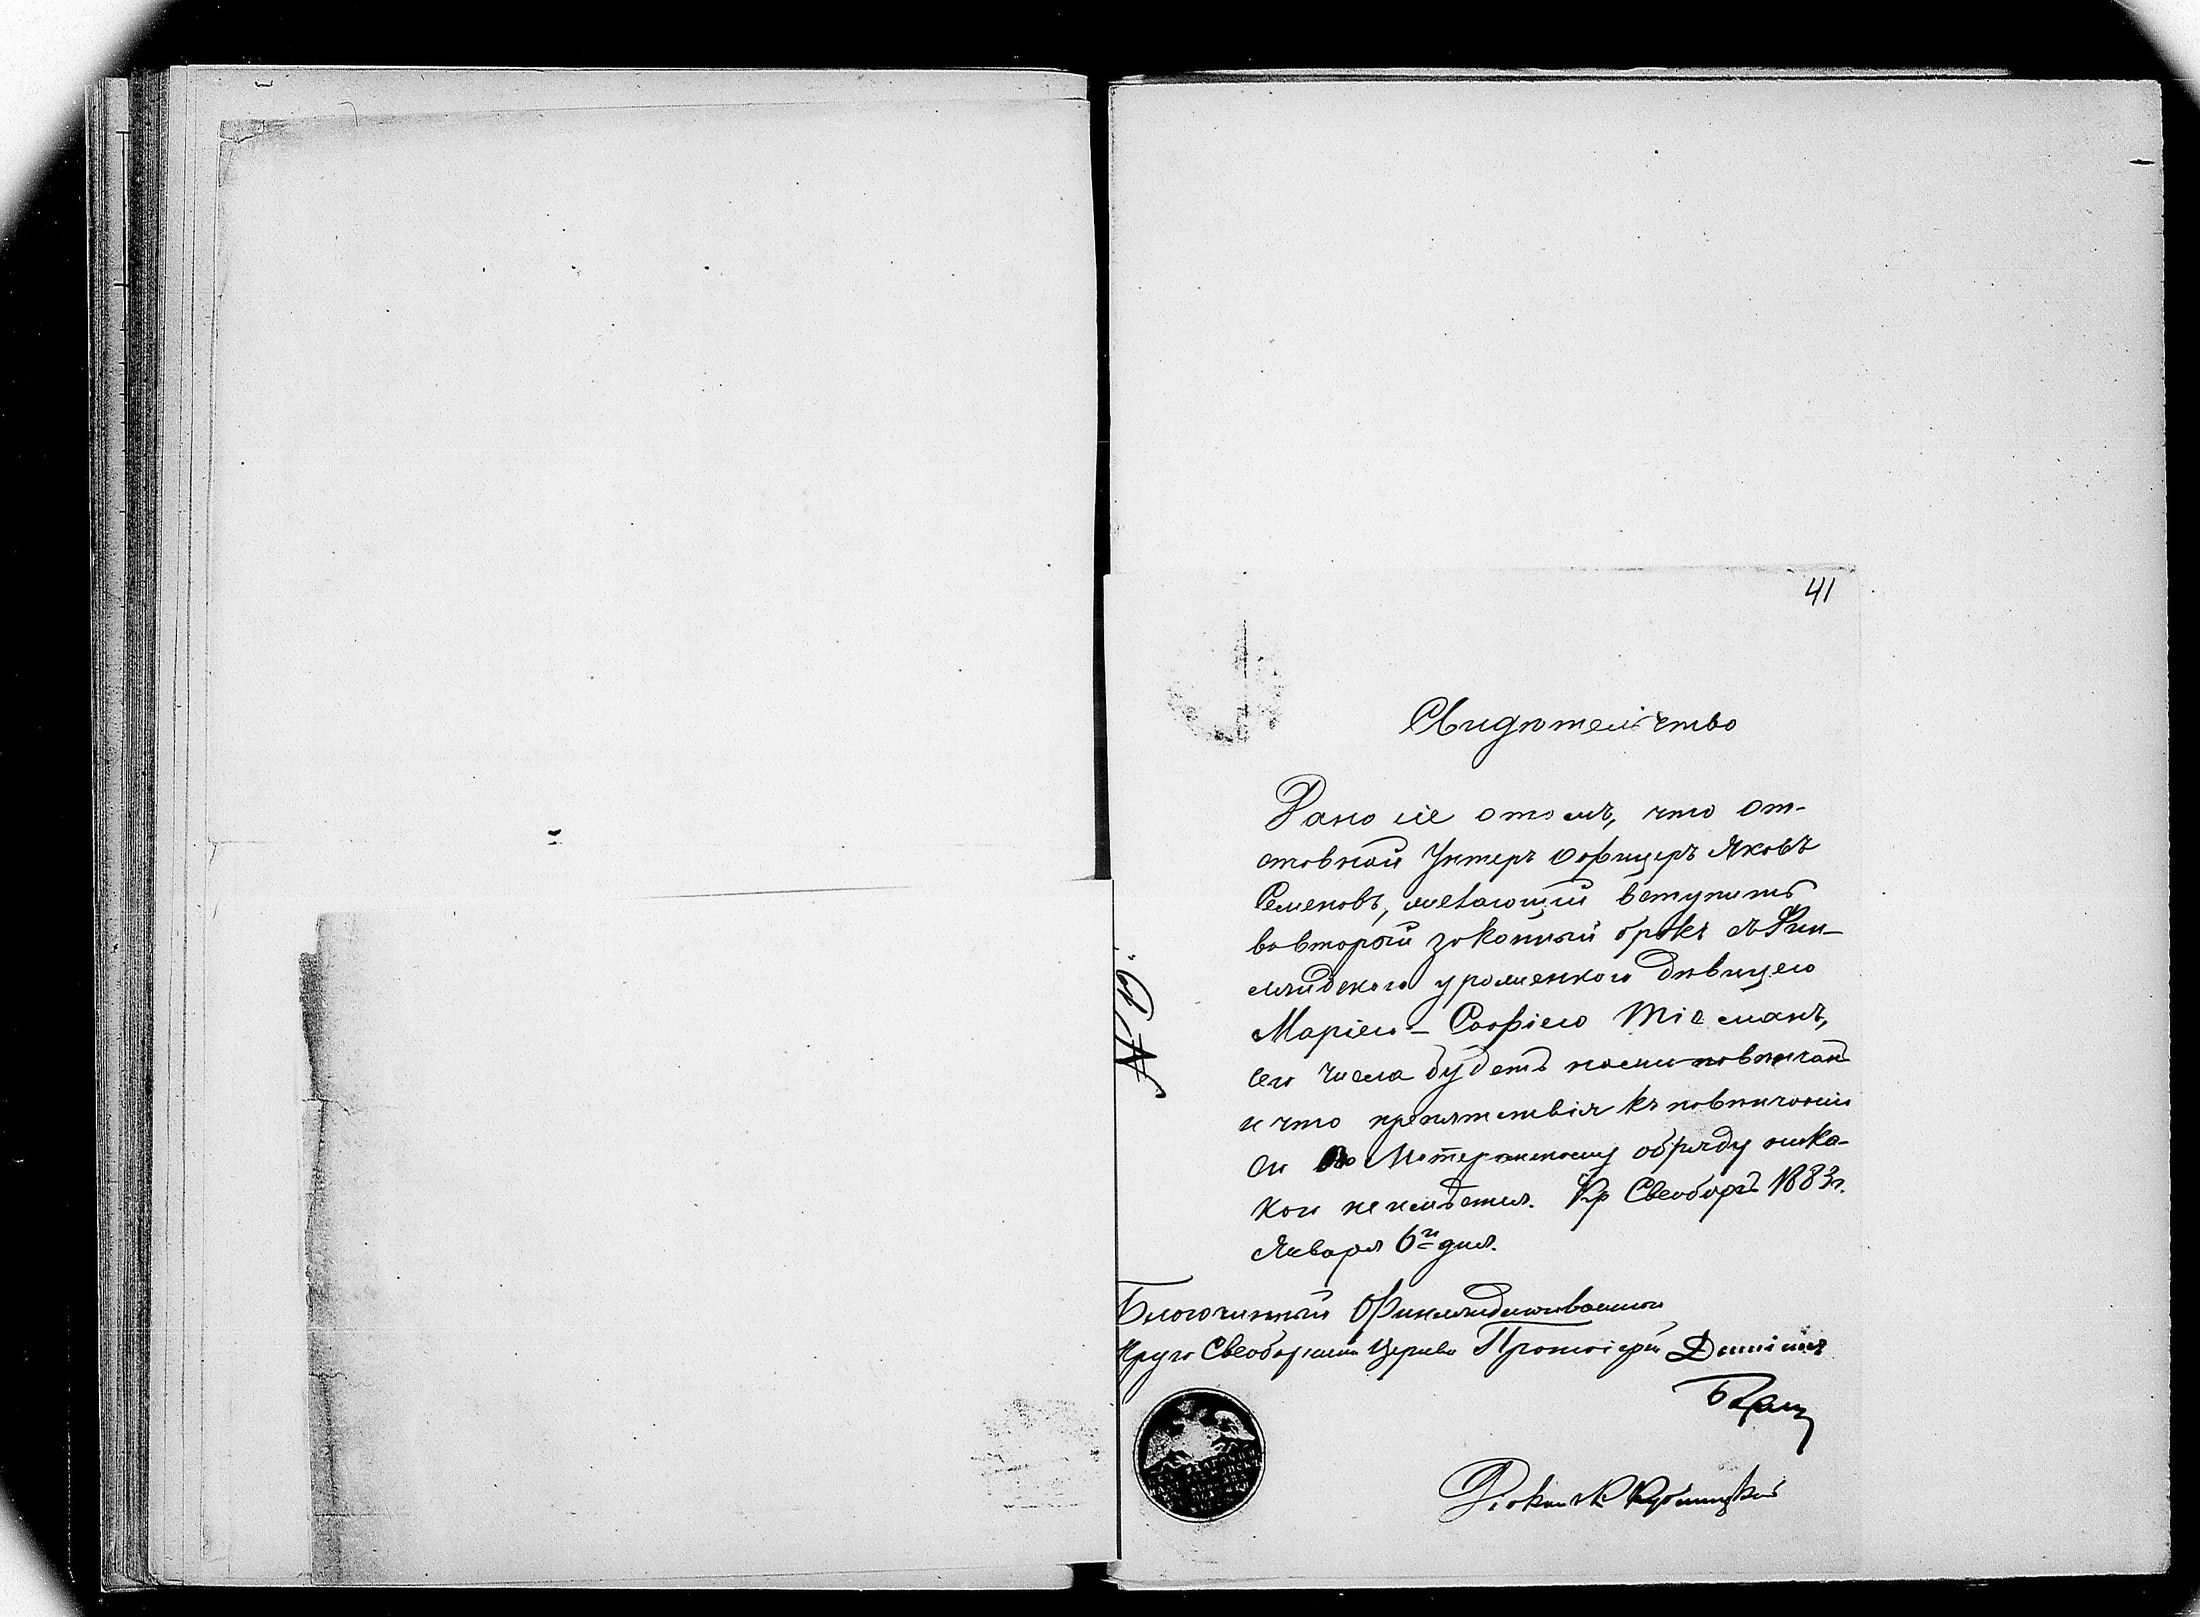 41
№ 6.
Свидѣтельство
Дано сіе отомъ, что от-
ставной Унтеръ Офицеръ Яковъ
Семеновъ, желающій вступить
во второй законный бракъ съ Фин-
ляндскою уроженкою дѣвицею
Маріею-Софіею
сего числа будетъ мною повѣнчанъ
и что препятствія къ повѣнчанію
ихъ по Лютеранскому обряду ника-
кого не имѣется. Кр Свеаборгъ 1883г.
Января 6го дня.
Благочинный Финляндскихъ
Свеаборгской Церкви Протоіерей
Діаконъ